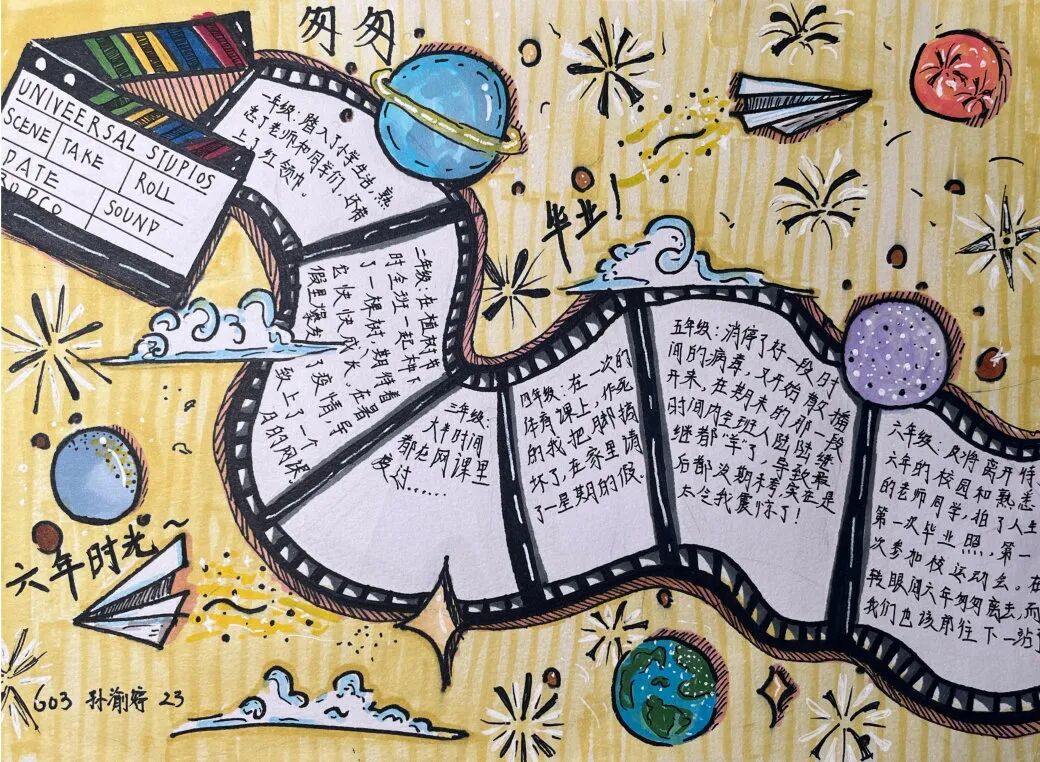 匆匆
UNIVEERSAL STUPIOS
SCENE
TAKE
ROLL
DATE
SOUND
一年级:踏入了小学生活,熟
悉了老师和同学们,还带
上了红领巾。
毕业!
二年级:在植树节
时全班一起种下
了一棵树,期待着
它快快成长。在暑
假里爆发了疫情,导
致上了一个
月的网课
三年级:
大半时间
都在网课里
度过......
四年级:在一次的
体育课上,作死
的我把脚搞
坏了,在家里请
了一星期的假.
五年级:消停了好一段时
间的病毒,又开始散播
开来,在期末的那一段
时间内全班人陆陆继
继都"羊"了,导致最
后都没期末考,实在是
太令我震惊了!
六年级:及将离开待
六年的校园和熟悉
的老师同学,拍了人生
第一次毕业照,第一
次参加校运动会。在
转眼间六年匆匆离去,而
我们也该前往下一站
六年时光~
603 孙渝婷 23